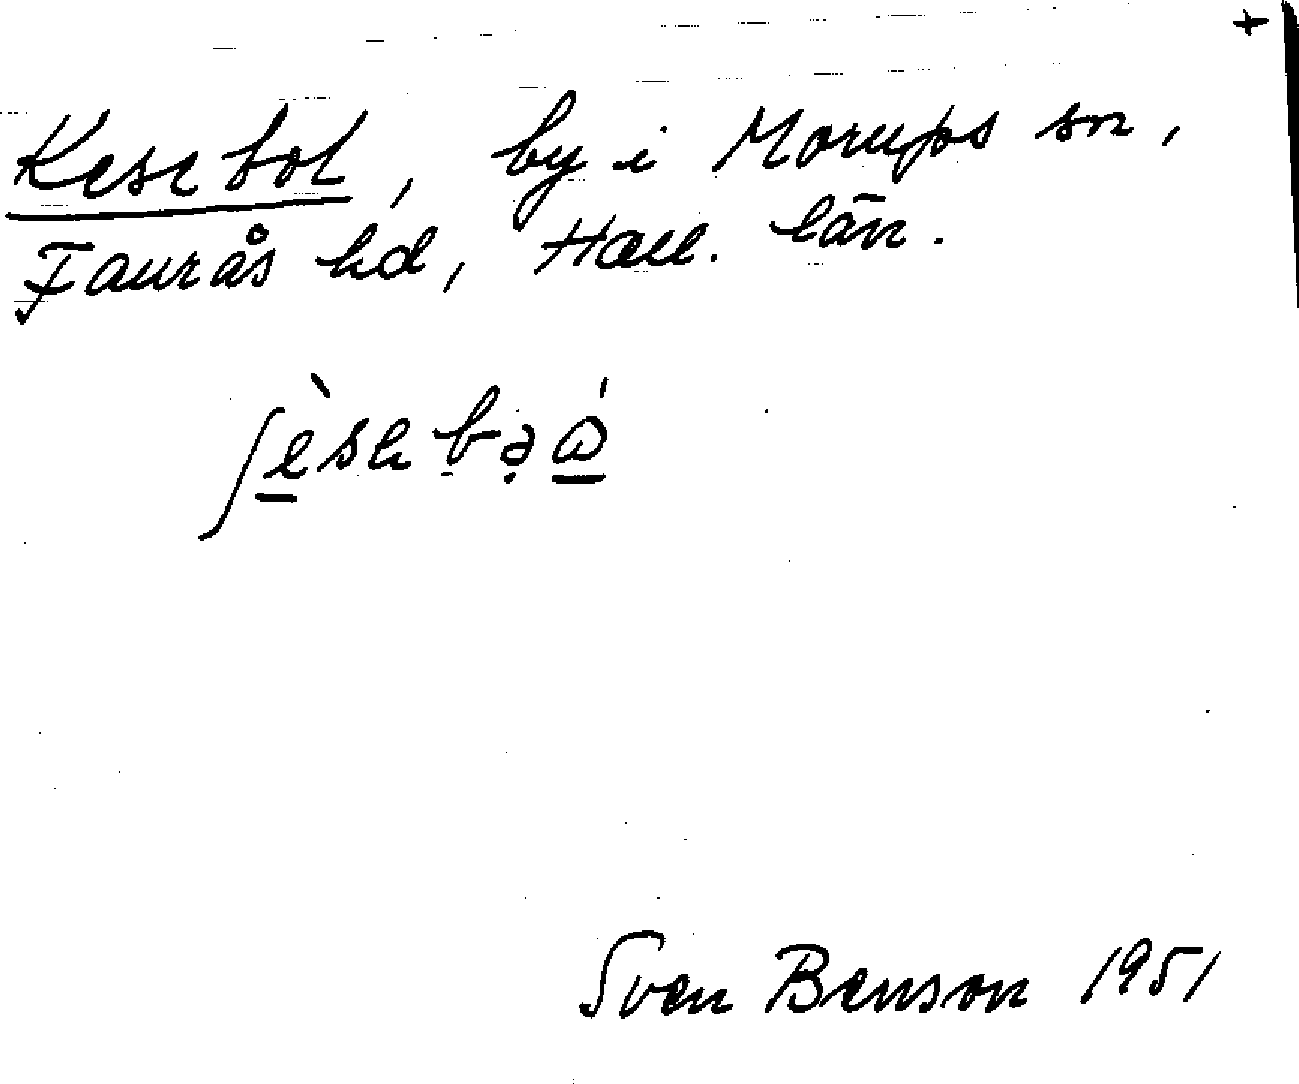 +
Kesebol, by i Morups sn,
Faurås hd, Hall. län.
Sven Benson 1951